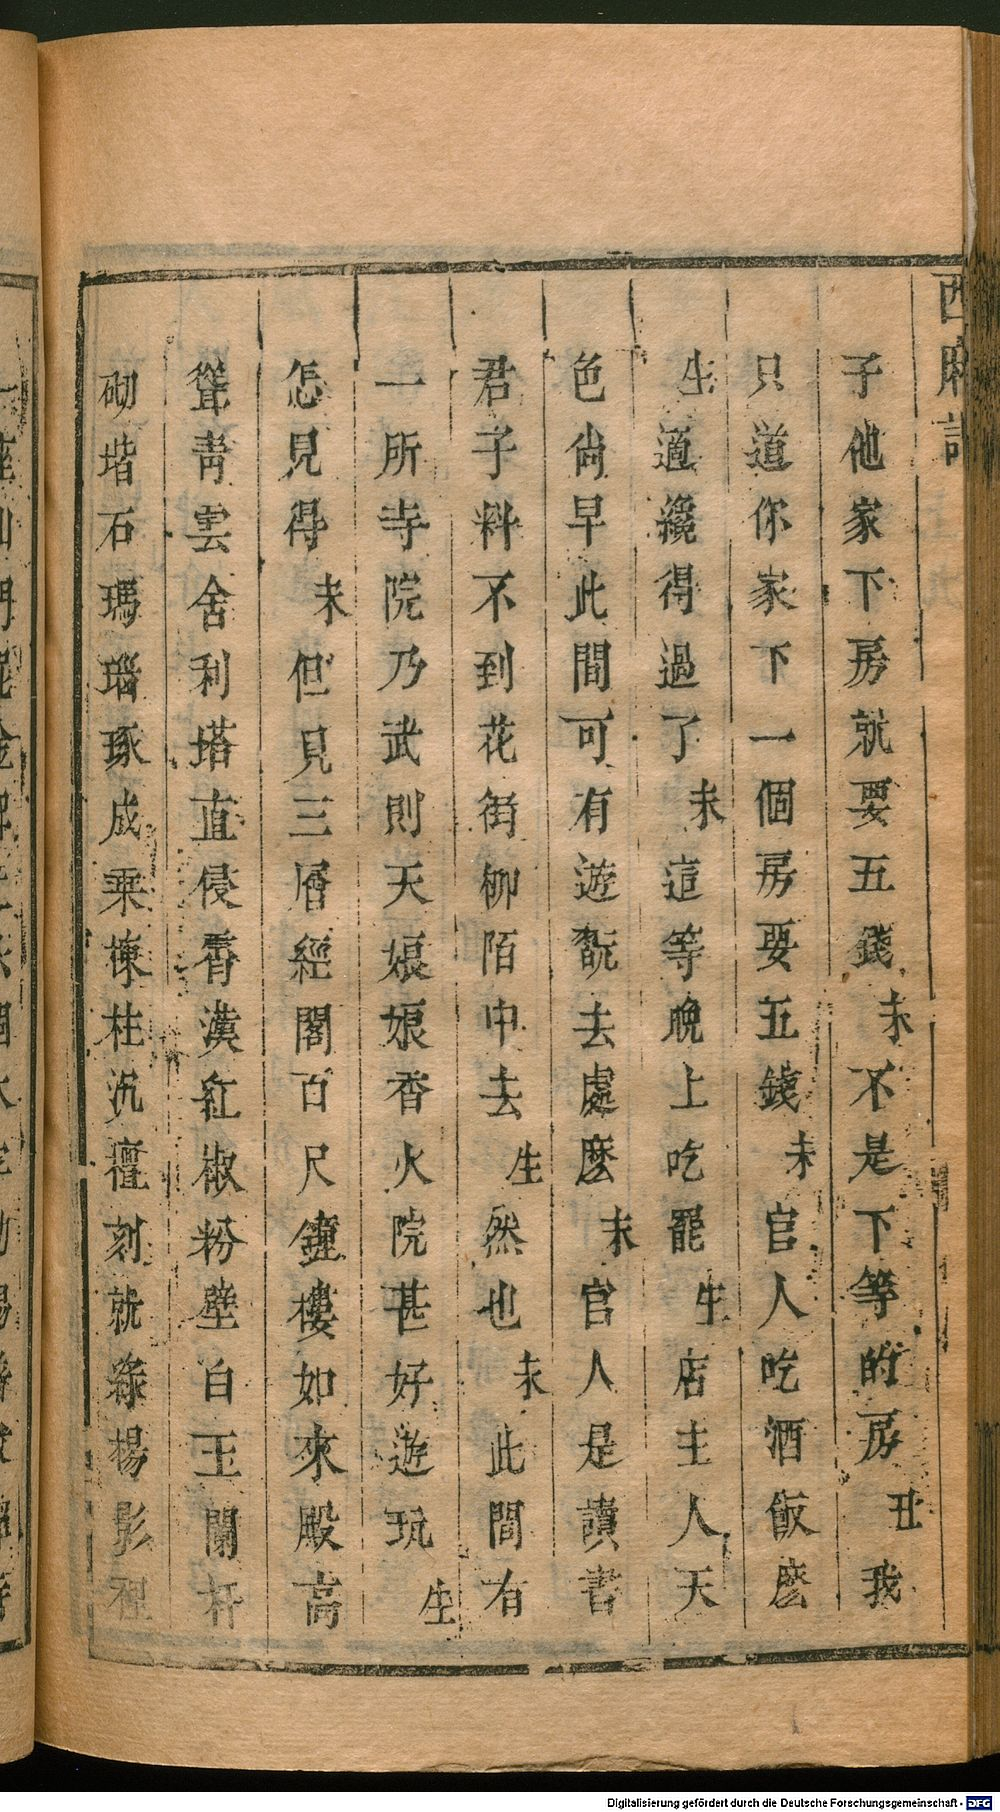 西廂記
子他家下房就要五錢末不是下等的房丑我
只道你家下一個房要五錢末官人吃酒飯麽
生適纔得過了末這等晚上吃罷生店主人天
色尚早此間可有遊翫去處麽末官人是讀書
君子料不到花街柳陌中去生然也末此間有
一所寺院乃武則天娘娘香火院甚好遊玩生
怎見得末但見三層經閣百尺鐘樓如來殿高
聳青雲舍利塔直侵霄漢紅椒粉壁白玉闌杆
砌堦石瑪瑙琢成乗棟柱沉檀刻就綠楊影裡
Digitalisierung gefördert durch die Deutsche Forschungsgemeinschaft - DFG